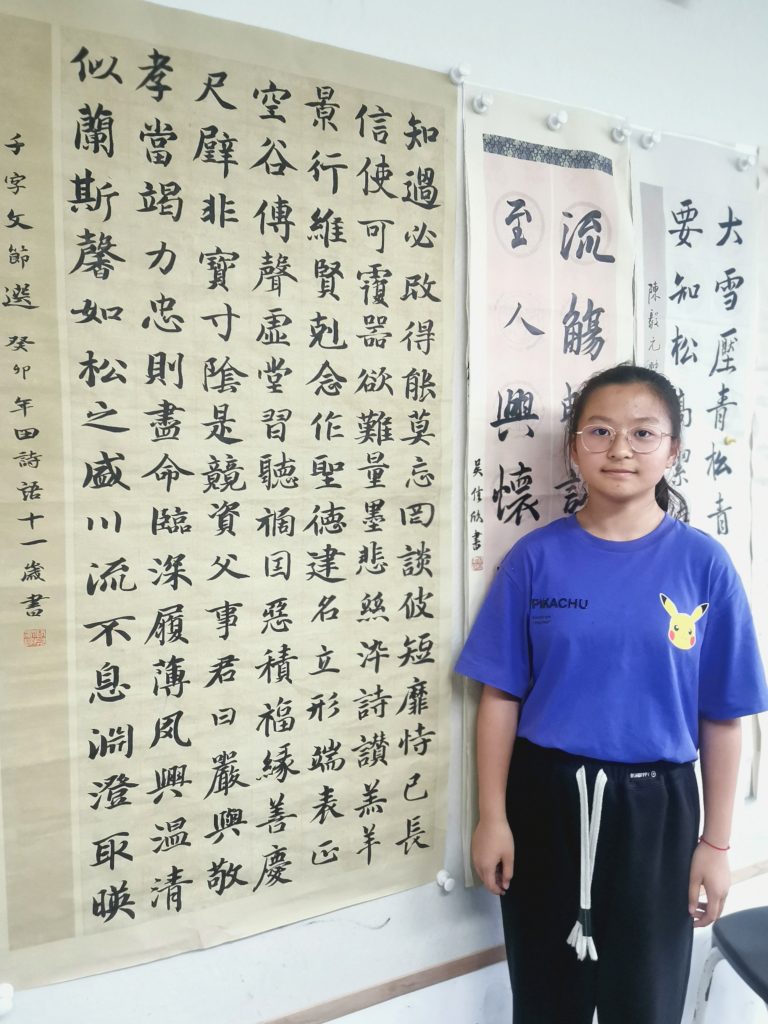 知過必改得能莫忘罔談彼短靡恃己長
信使可覆器欲難量墨悲絲染詩讚羔羊
景行維賢剋念作聖德建名立形端表正
空谷傳聲虛堂習聽禍因惡積福緣善慶
尺璧非寶寸陰是競資父事君曰嚴與敬
孝當竭力忠則盡命臨深履薄夙興温清
似蘭斯馨如松之盛川流不息淵澄取暎
千字文節選 癸卯年田詩語十一歲書
流觴
至人興懷
欣書
大雪壓青松青
要知松高潔
陳毅元
PIKACHU